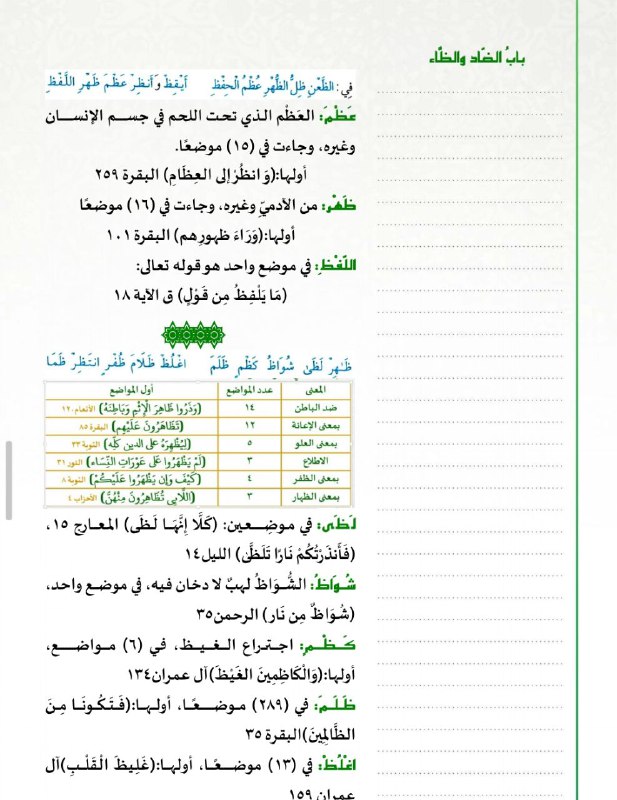 بابُ الضّاد والظّاء
فِي: الظَّعْنِ ظِلُّ الظُّهْرِ عُظْمُ الْحِفْظِ أَيْقِظْ وَأَنظِرْ عَظْمَ ظَهْرِ اللَّفْظِ
عَظْمَ: العَظْم الذي تحت اللحم في جسم الإنسان
وغيره، وجاءت في (١٥) موضعًا.
أولها:(وَانظُرْ إلى العِظَامِ) البقرة ٢٥٩
ظَهْر: من الآدميّ وغيره، وجاءت في (١٦) موضعًا
أولها:(وَرَاءَ ظهورِهم) البقرة ١٠١
اللَّفْظِ: في موضع واحد هو قوله تعالى:
(مَا يَلْفِظُ مِن قَوْلٍ) ق الآية ١٨
ظَـٰهِرْ لَظَىٰ شُوَاظُ كَظْمٍ ظَلَمَ اغْلُظْ ظَلَامَ ظُفْرٍ انتَظِرْ ظَمَا
المعنى عدد المواضع أول المواضع
ضد الباطن ١٤ (وَذَرُوا ظَاهِرَ الْإِثْمِ وَبَاطِنَهُ) الأنعام١٢٠
بمعنى الإعانة ١٢ (تَظَاهَرُونَ عَلَيْهِم) البقرة ٨٥
بمعنى العلو ٥ (لِيُظْهِرَهُ على الدين كلِّه) التوبة ٣٣
الاطلاع ٣ (لَمْ يَظْهَرُوا عَلَى عَوْرَاتِ النِّسَاء) النور ٣١
بمعنى الظفر ٤ (كَيْفَ وَإِن يَظْهَرُوا عَلَيْكُمْ) التوبة ٨
بمعنى الظهار ٣ (اللَّايِي تُظَاهِرُونَ مِنْهُنَّ) الأحزاب ٤
لَظَى: في موضعين: (كَلَّا إِنَّهَا لَظَى) المعارج ١٥،
(فَأَنذَرْتُكُمْ نَارًا تَلَظَّىٰ) الليل١٤
شُوَاظُ: الشُّوَاظُ لهبٌ لا دخان فيه، في موضع واحد،
(شُوَاظٌ مِن نَار) الرحمن٣٥
كَظْمِ: اجتراع الغيظ، في (٦) مواضع،
أولها:(وَالْكَاظِمِينَ الغَيْظَ)آل عمران١٣٤
ظَلَمَ: في (٢٨٩) موضعًا، أولها:(فَتَكُونَا مِنَ
الظَّالِمِينَ)البقرة ٣٥
اغْلُظْ: في (١٣) موضعًا، أولها:(غَلِيظَ الْقَلْبِ)آل
عمران ١٥٩